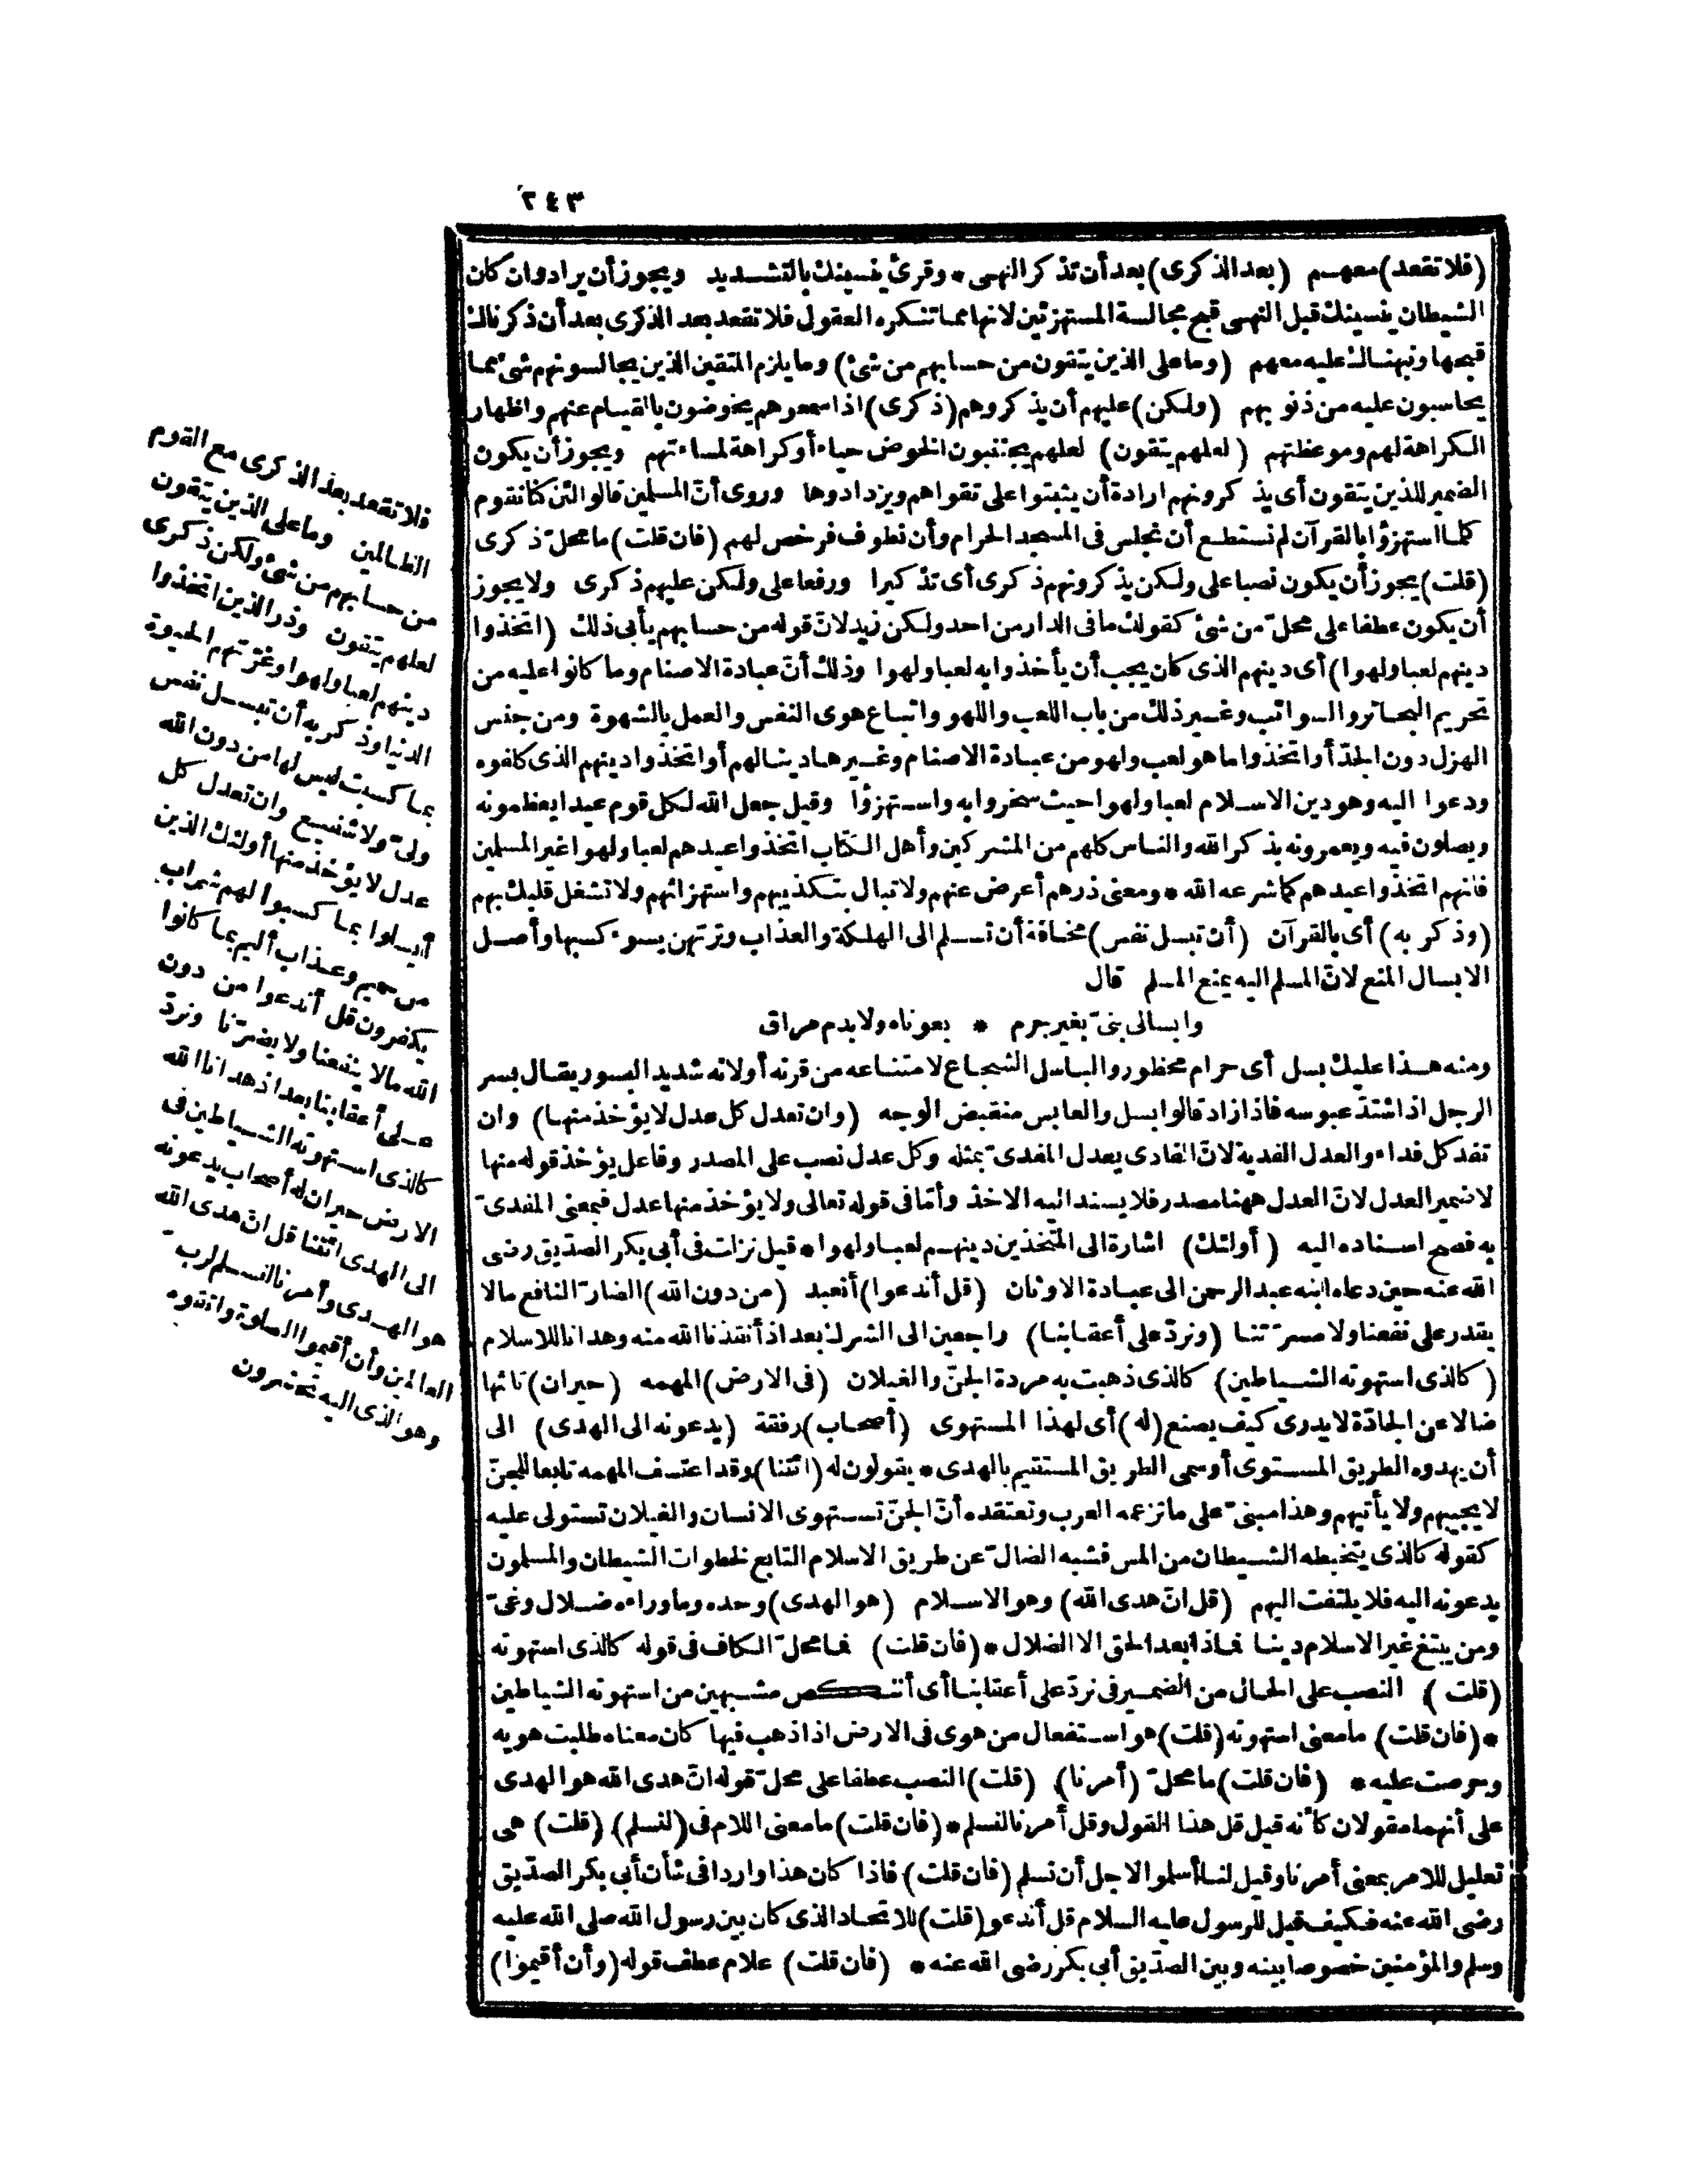 ٢٤٣
(فلا تقعد) معهم (بعد الذكرى) بعد أن تذكر النهى * وقرئ ينسينك بالتشديد ويجوز أن يراد وان كان
الشيطان ينسينك قبل النهى قبح مجالسة المستهزئين لانها مما تنكره العقول فلا تقعد بعد الذكرى بعد أن ذكرناك
قبحها ونبهناك عليه معهم (وما على الذين يتقون من حسابهم من شئ) وما يلزم المتقين الذين يجالسونهم شئ مما
يحاسبون عليه من ذنوبهم (ولكن) عليهم أن يذكروهم (ذكرى) اذا سمعوهم يخوضون بالقيام عنهم واظهار
الكراهة لهم وموعظتهم (لعلهم يتقون) لعلهم يجتنبون الخوض حياء أو كراهة لمساءتهم ويجوز أن يكون
الضمير للذين يتقون أى يذكرونهم ارادة أن يثبتوا على تقواهم ويزدادوها وروى أنّ المسلمين قالوا لئن كنا نقوم
كلما استهزؤا بالقرآن لم نستطع أن نجلس فى المسجد الحرام وأن نطوف فرخص لهم (فان قلت) ما محلّ ذكرى
(قلت) يجوز أن يكون نصبا على ولكن يذكرونهم ذكرى أى تذكيرا ورفعا على ولكن عليهم ذكرى ولا يجوز
أن يكون عطفا على محلّ من شئ كقولك ما فى الدار من احد ولكن زيد لانّ قوله من حسابهم يأبى ذلك (اتخذوا
دينهم لعبا ولهوا) أى دينهم الذى كان يجب أن يأخذوا به لعبا ولهوا وذلك أنّ عبادة الاصنام وما كانوا عليه من
تحريم البحائر والسوائب وغير ذلك من باب اللعب واللهو واتباع هوى النفس والعمل بالشهوة ومن جنس
الهزل دون الجدّ أو اتخذوا ما هو لعب ولهو من عبادة الاصنام وغيرها دينا لهم أو اتخذوا دينهم الذى كلفوه
ودعوا اليه وهو دين الاسلام لعبا ولهوا حيث سخروا به واستهزؤا وقيل جعل الله لكل قوم عيدا يعظمونه
ويصلون فيه ويعمرونه بذكر الله والناس كلهم من المشركين وأهل الكتاب اتخذوا عيدهم لعبا ولهوا غير المسلمين
فانهم اتخذوا عيدهم كما شرعه الله * ومعنى ذرهم أعرض عنهم ولا تبال بتكذيبهم واستهزائهم ولا تشغل قلبك بهم
(وذكر به) أى بالقرآن (أن تبسل نفس) مخافة أن تسلم الى الهلكة والعذاب وترتهن بسوء كسبها وأصل
الابسال المنع لانّ المسلم اليه يمنع المسلم قال
وابسالى بنىّ بغير جرم * بعوناه ولا بدم مراق
ومنه هذا عليك بسل أى حرام محظور والباسل الشجاع لامتناعه من قرنه أو لانه شديد البسور يقال بسر
الرجل اذا اشتدّ عبوسه فاذا زاد قالوا بسل والعابس منقبض الوجه (وان تعدل كل عدل لا يؤخذ منها) وان
تفد كل فداء والعدل الفدية لانّ الفادى يعدل المفدىّ بمثله وكل عدل نصب على المصدر وفاعل يؤخذ قوله منها
لا ضمير العدل لانّ العدل ههنا مصدر فلا يسند اليه الاخذ وأمّا فى قوله تعالى ولا يؤخذ منها عدل فبمعنى المفدىّ
به فصح اسناده اليه (أولئك) اشارة الى المتخذين دينهم لعبا ولهوا * قيل نزلت فى أبى بكر الصدّيق رضى
الله عنه حين دعاه ابنه عبد الرحمن الى عبادة الاوثان (قل أندعوا) أنعبد (من دون الله) الضارّ النافع مالا
يقدر على نفعنا ولا مضرّتنا (ونردّ على أعقابنا) راجعين الى الشرك بعد اذ أنقذنا الله منه وهدانا للاسلام
(كالذى استهوته الشياطين) كالذى ذهبت به مردة الجنّ والغيلان (فى الارض) المهمه (حيران) تائها
ضالا عن الجادّة لا يدرى كيف يصنع (له) أى لهذا المستهوى (أصحاب) رفقة (يدعونه الى الهدى) الى
أن يهدوه الطريق المستوى أو سمى الطريق المستقيم بالهدى * يقولون له (ائتنا) وقد اعتسف المهمه تابعا للجنّ
لا يجيبهم ولا يأتيهم وهذا مبنىّ على ما تزعمه العرب وتعتقده أنّ الجنّ تستهوى الانسان والغيلان تستولى عليه
كقوله كالذى يتخبطه الشيطان من المس فشبه الضالّ عن طريق الاسلام التابع لخطوات الشيطان والمسلمون
يدعونه اليه فلا يلتفت اليهم (قل انّ هدى الله) وهو الاسلام (هو الهدى) وحده وما وراءه ضلال وغىّ
ومن يبتغ غير الاسلام دينا فماذا بعد الحق الا الضلال * (فان قلت) فما محلّ الكاف فى قوله كالذى استهوته
(قلت) النصب على الحال من الضمير فى نردّ على أعقابنا أى أننكص مشبهين من استهوته الشياطين
* (فان قلت) ما معنى استهوته (قلت) هو استفعال من هوى فى الارض اذا ذهب فيها كان معناه طلبت هويه
وحرصت عليه * (فان قلت) ما محلّ (أمرنا) (قلت) النصب عطفا على محلّ قوله انّ هدى الله هو الهدى
على أنهما مقولان كأنه قيل قل هذا القول وقل أمرنا لنسلم * (فان قلت) ما معنى اللام فى (لنسلم) (قلت) هى
تعليل للامر بمعنى أمرنا وقيل لنا أسلموا لاجل أن نسلم (فان قلت) فاذا كان هذا واردا فى شأن أبى بكر الصدّيق
رضى الله عنه فكيف قيل للرسول عليه السلام قل أندعو (قلت) للاتحاد الذى كان بين رسول الله صلى الله عليه
وسلم والمؤمنين خصوصا بينه وبين الصدّيق أبى بكر رضى الله عنه * (فان قلت) علام عطف قوله (وأن أقيموا)
فلا تقعد بعد الذكرى مع القوم
الظالمين وما على الذين يتقون
من حسابهم من شئ ولكن ذكرى
لعلهم يتقون وذر الذين اتخذوا
دينهم لعبا ولهوا وغرّتهم الحيوة
الدنيا وذكر به أن تبسل نفس
بما كسبت ليس لها من دون الله
ولىّ ولا شفيع وان تعدل كل
عدل لا يؤخذ منها أولئك الذين
أبسلوا بما كسبوا لهم شراب
من حميم وعذاب أليم بما كانوا
يكفرون قل أندعوا من دون
الله مالا ينفعنا ولا يضرّنا ونردّ
على أعقابنا بعد اذ هدانا الله
كالذى استهوته الشياطين فى
الارض حيران له أصحاب يدعونه
الى الهدى ائتنا قل انّ هدى الله
هو الهدى وأمرنا لنسلم لربّ
العالمين وأن أقيموا الصلوة واتقوه
وهو الذى اليه تحشرون